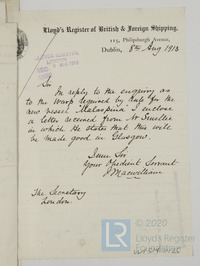 Lloyd's Register of British & Foreign Shipping,
115, Philipsburgh Avenue,
Dublin, 8th Aug 1913
Sir
In reply to the enquiry as
to the Warp required by Rule for the
new vessel Malaspina I enclose
a letter received from Mr Smellie
in which he states that this will
be made good in Glasgow.
I am Sir
Your Obedient Servant
J Macwilliam
The Secretary
London.
© 2020
Lloyd's Register
Foundation